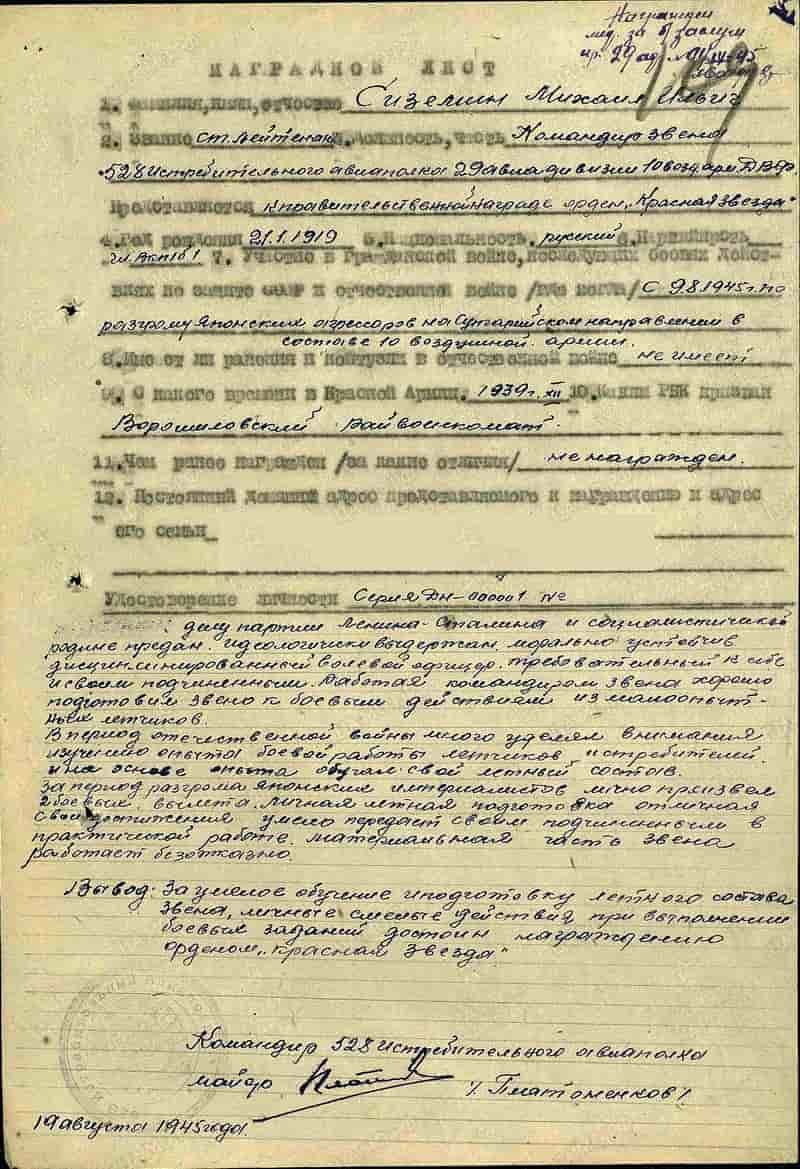 Награжден
мед. за б/заслуг
пр. 29 ад
НАГРАДНОЙ ЛИСТ
1. Фамилия, имя, отчество Сизелин Михаил Ильич
2. Звание ст. лейтенант 3. Должность, часть Командир звена
528 истребительного авиаполка 29 авиадивизии 10 возд. арм. ДВФр.
Представляется к правительственной награде орден „Красная звезда"
4. Год рождения 21.1.1919 5. Национальность русский 6. Партийность
чл. ВКП(б) 7. Участие в Гражданской войне, последующих боевых дейст-
виях по защите СССР и отечественной войне /где когда/ с 9.8.1945г. по
разгрому Японских агрессоров на Сунгарийском направлении в
составе 10 воздушной армии.
8. Имеет ли ранения и контузии в отечественной войне не имеет
9. С какого времени в Красной Армии 1939г. XII 10. Каким РВК призван
Ворошиловский райвоенкомат.
11. Чем ранее награжден /за какие отличия/ не награжден.
12. Постоянный домашний адрес представляемого к награждению и адрес
его семьи
Удостоверение личности Серия ДН-000001 №
делу партии Ленина-Сталина и социалистической
родине предан. идеологически выдержан, морально устойчив
дисциплинированный волевой офицер. требовательный к себе
и своим подчиненным. Работая командиром звена хорошо
подготовил звено к боевым действиям из малоопыт-
ных летчиков.
В период отечественной войны много уделял внимания
изучению опыта боевой работы летчиков истребителей.
и на основе опыта обучал свой летный состав.
За период разгрома японских империалистов лично произвел
2 боевых вылета. Личная летная подготовка отличная
Свои достижения умело передает своим подчиненным в
практической работе. Материальная часть звена
работает безотказно.
Вывод: За умелое обучение и подготовку летного состава
звена, личные смелые действия при выполнении
боевых заданий достоин награждению
орденом „Красная Звезда"
Командир 528 истребительного авиаполка
майор /Платоненков/
19 августа 1945 года.